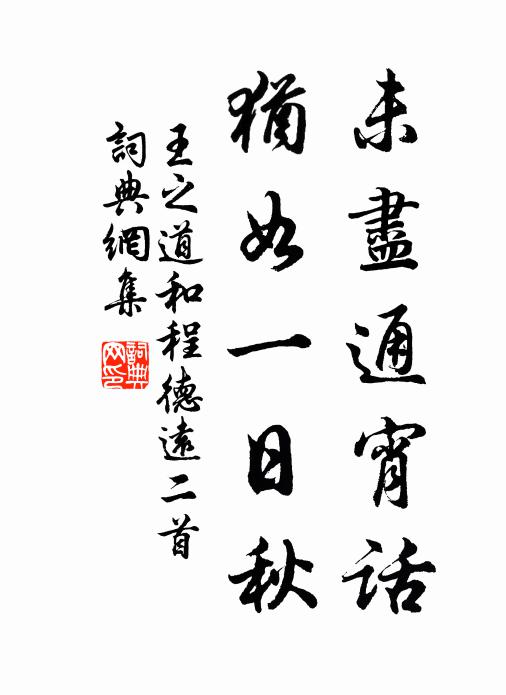 未盡通宵話
猶如一日秋
王之道和程德遠二首
詞典網集
詞典網印